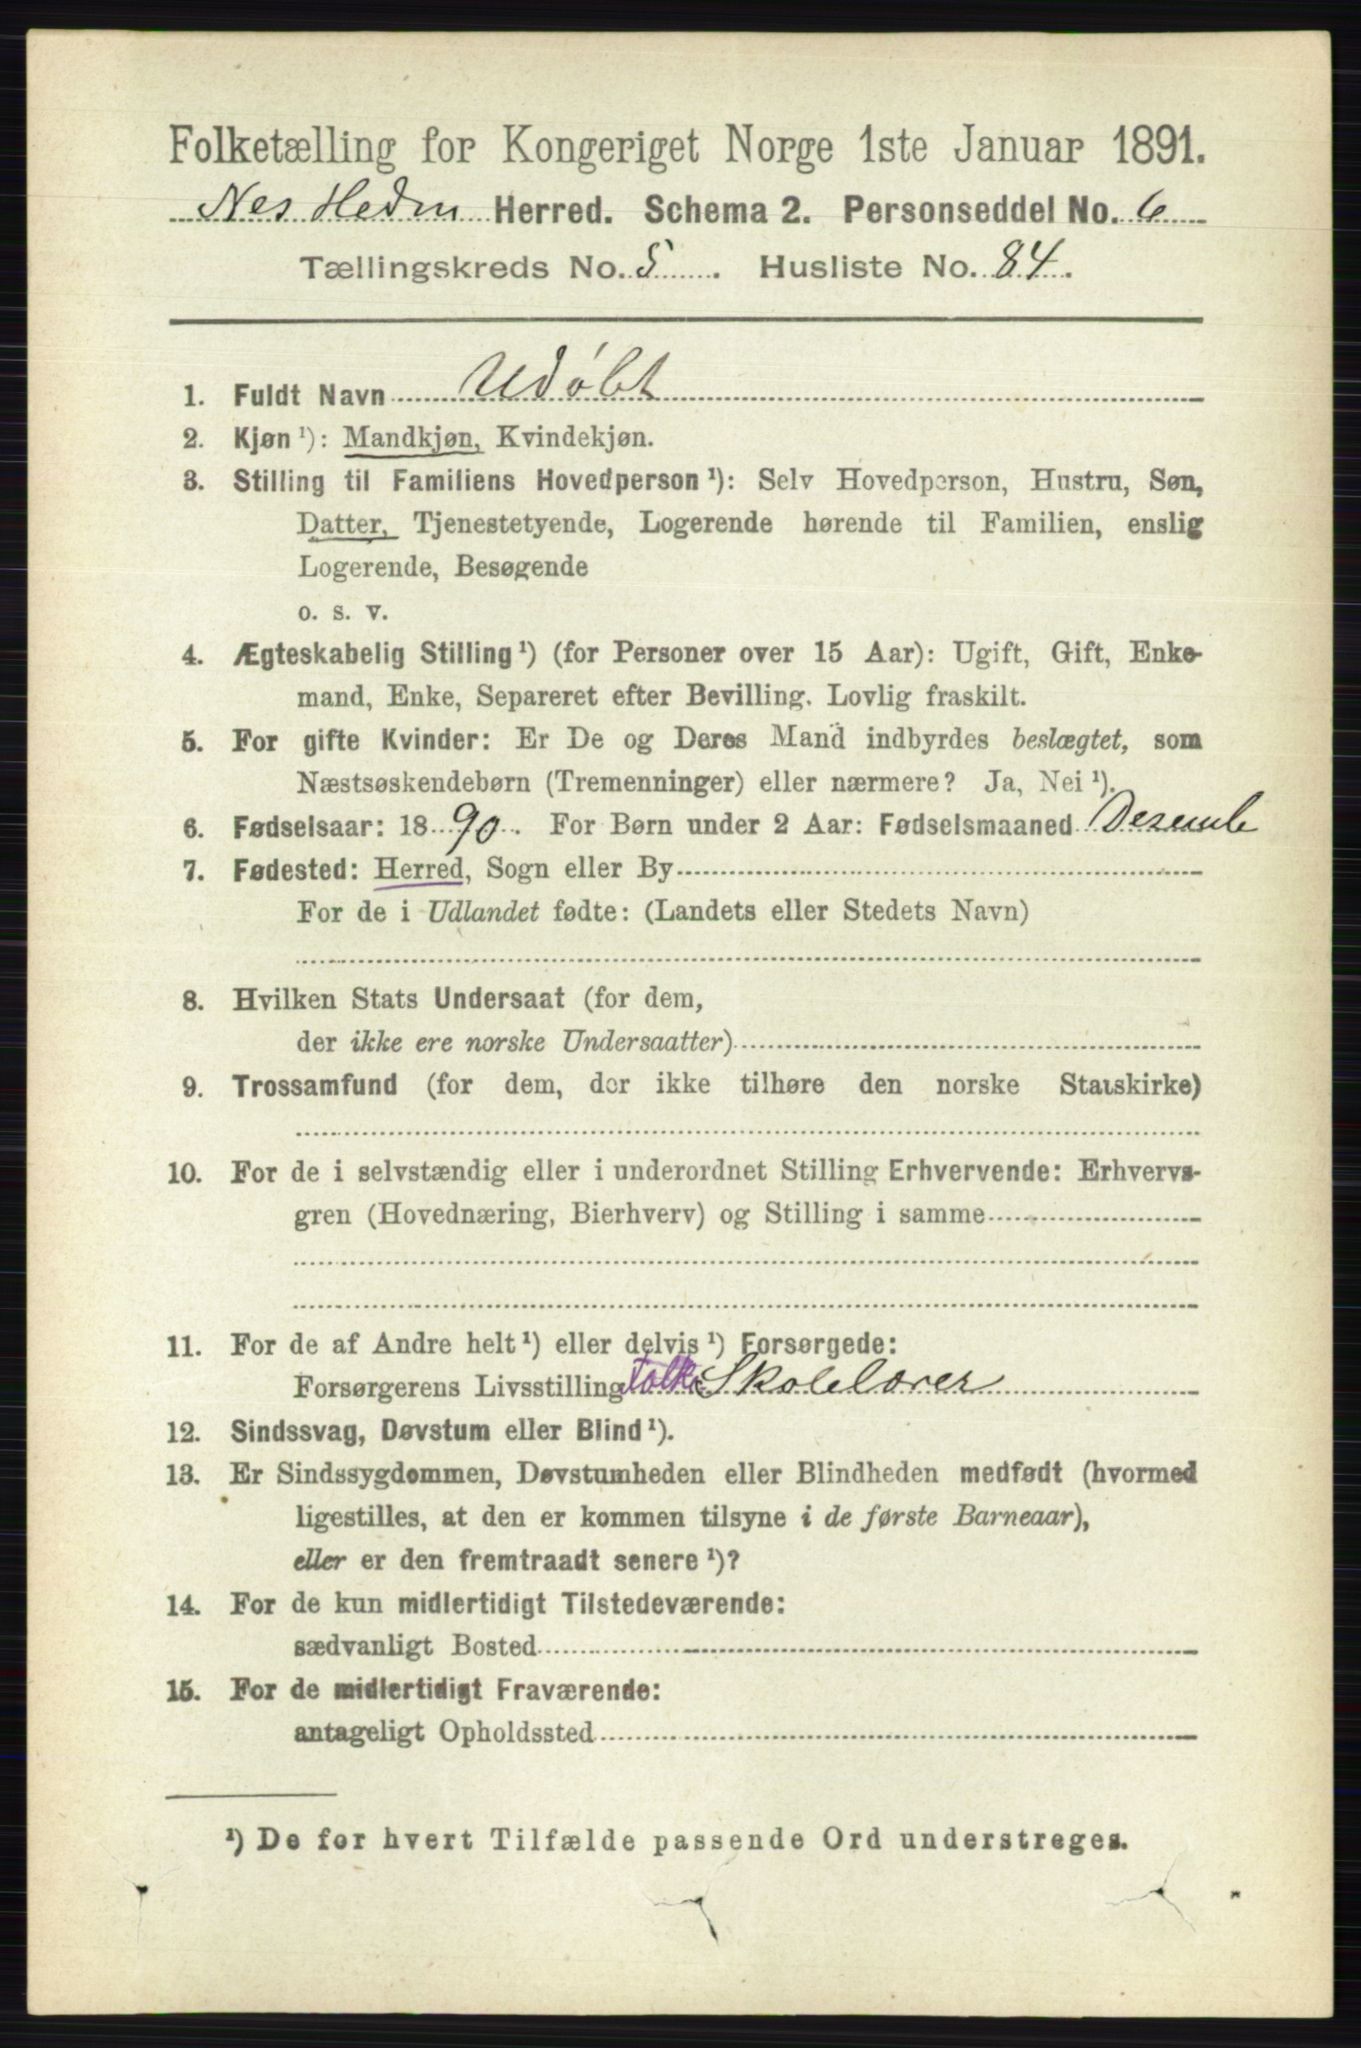 Folketælling for Kongeriget Norge 1ste Januar 1891.
Nes Hedm Herred. Schema 2. Personseddel No. 6
Tællingskreds No. 5. Husliste No. 84.
1. Fuldt Navn Udøbt
2. Kjøn ¹): Mandkjøn, Kvindekjøn.
3. Stilling til Familiens Hovedperson ¹): Selv Hovedperson, Hustru, Søn,
Datter, Tjenestetyende, Logerende hørende til Familien, enslig
Logerende, Besøgende
o. s. v.
4. Ægteskabelig Stilling ¹) (for Personer over 15 Aar): Ugift, Gift, Enke-
mand, Enke, Separeret efter Bevilling. Lovlig fraskilt.
5. For gifte Kvinder: Er De og Deres Mand indbyrdes beslægtet, som
Næstsøskendebørn (Tremenninger) eller nærmere? Ja, Nei ¹).
6. Fødselsaar: 1890. For Børn under 2 Aar: Fødselsmaaned Dezembe
7. Fødested: Herred, Sogn eller By
For de i Udlandet fødte: (Landets eller Stedets Navn)
8. Hvilken Stats Undersaat (for dem,
der ikke ere norske Undersaatter)
9. Trossamfund (for dem, der ikke tilhøre den norske Statskirke)
10. For de i selvstændig eller i underordnet Stilling Erhvervende: Erhvervs-
gren (Hovednæring, Bierhverv) og Stilling i samme
11. For de af Andre helt ¹) eller delvis ¹) Forsørgede:
Forsørgerens Livsstilling Folke Skolelærer
12. Sindssvag, Døvstum eller Blind ¹).
13. Er Sindssygdommen, Døvstumheden eller Blindheden medfødt (hvormed
ligestilles, at den er kommen tilsyne i de første Barneaar),
eller er den fremtraadt senere ¹)?
14. For de kun midlertidigt Tilstedeværende:
sædvanligt Bosted
15. For de midlertidigt Fraværende:
antageligt Opholdssted
¹) De for hvert Tilfælde passende Ord understreges.